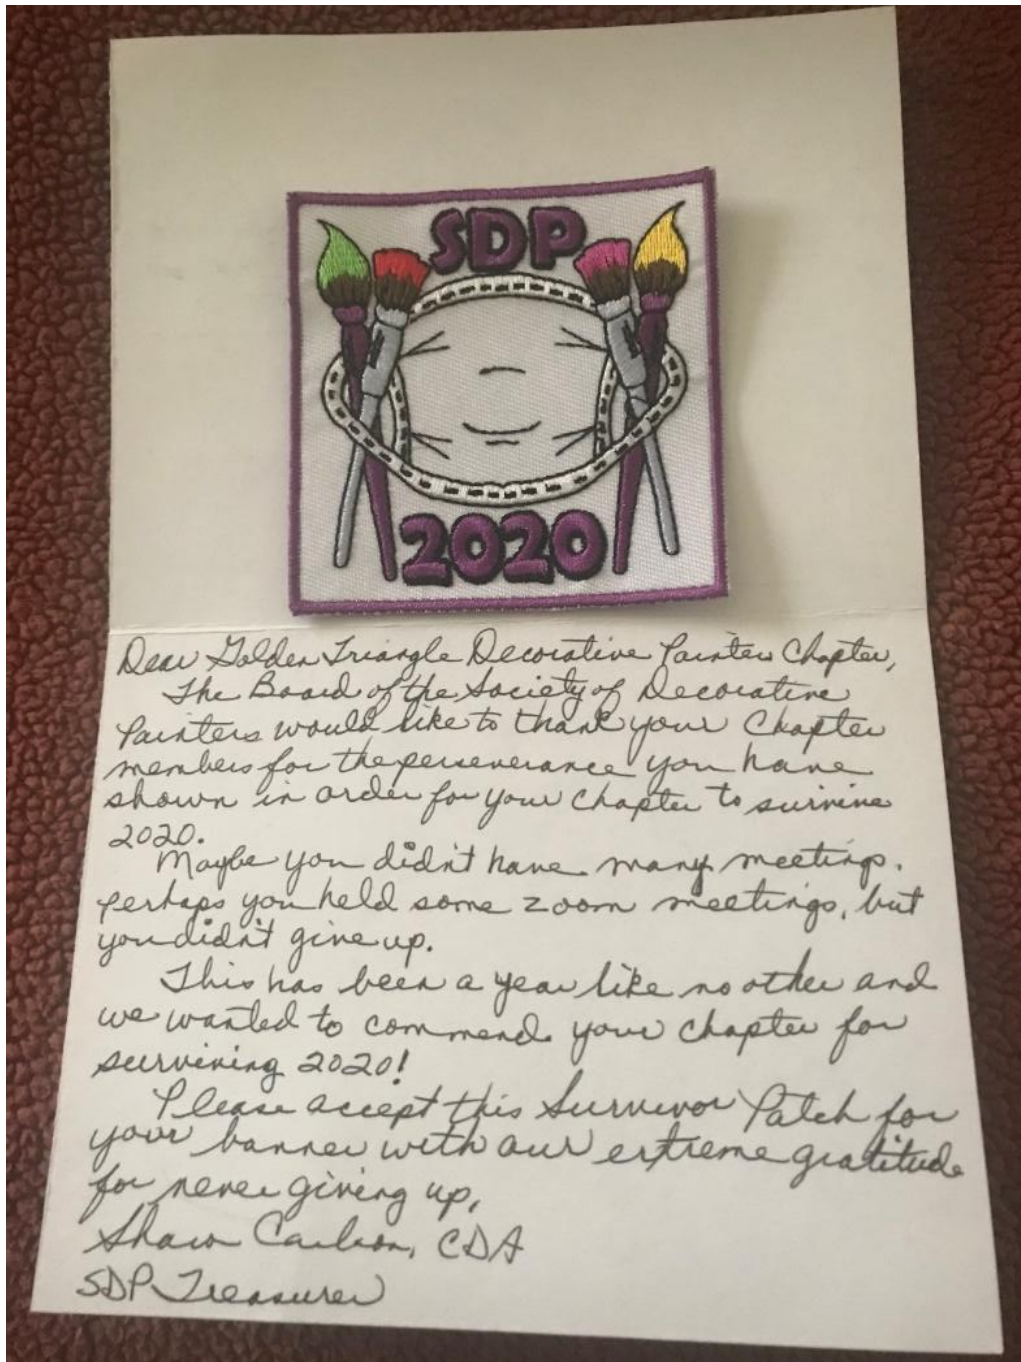 SDP
2020
Dear Golden Triangle Decorative Painters Chapter,
The Board of the Society of Decorative
Painters would like to thank your Chapter
members for the perseverance you have
shown in order for your Chapter to survive
2020.
Maybe you didn't have many meetings.
perhaps you held some zoom meetings, but
you didn't give up.
This has been a year like no other and
we wanted to commend your chapter for
surviving 2020!
Please accept this Survivor Patch for
your banner with our extreme gratitude
for never giving up,
Shawn Carlson, CDA
SDP Treasurer